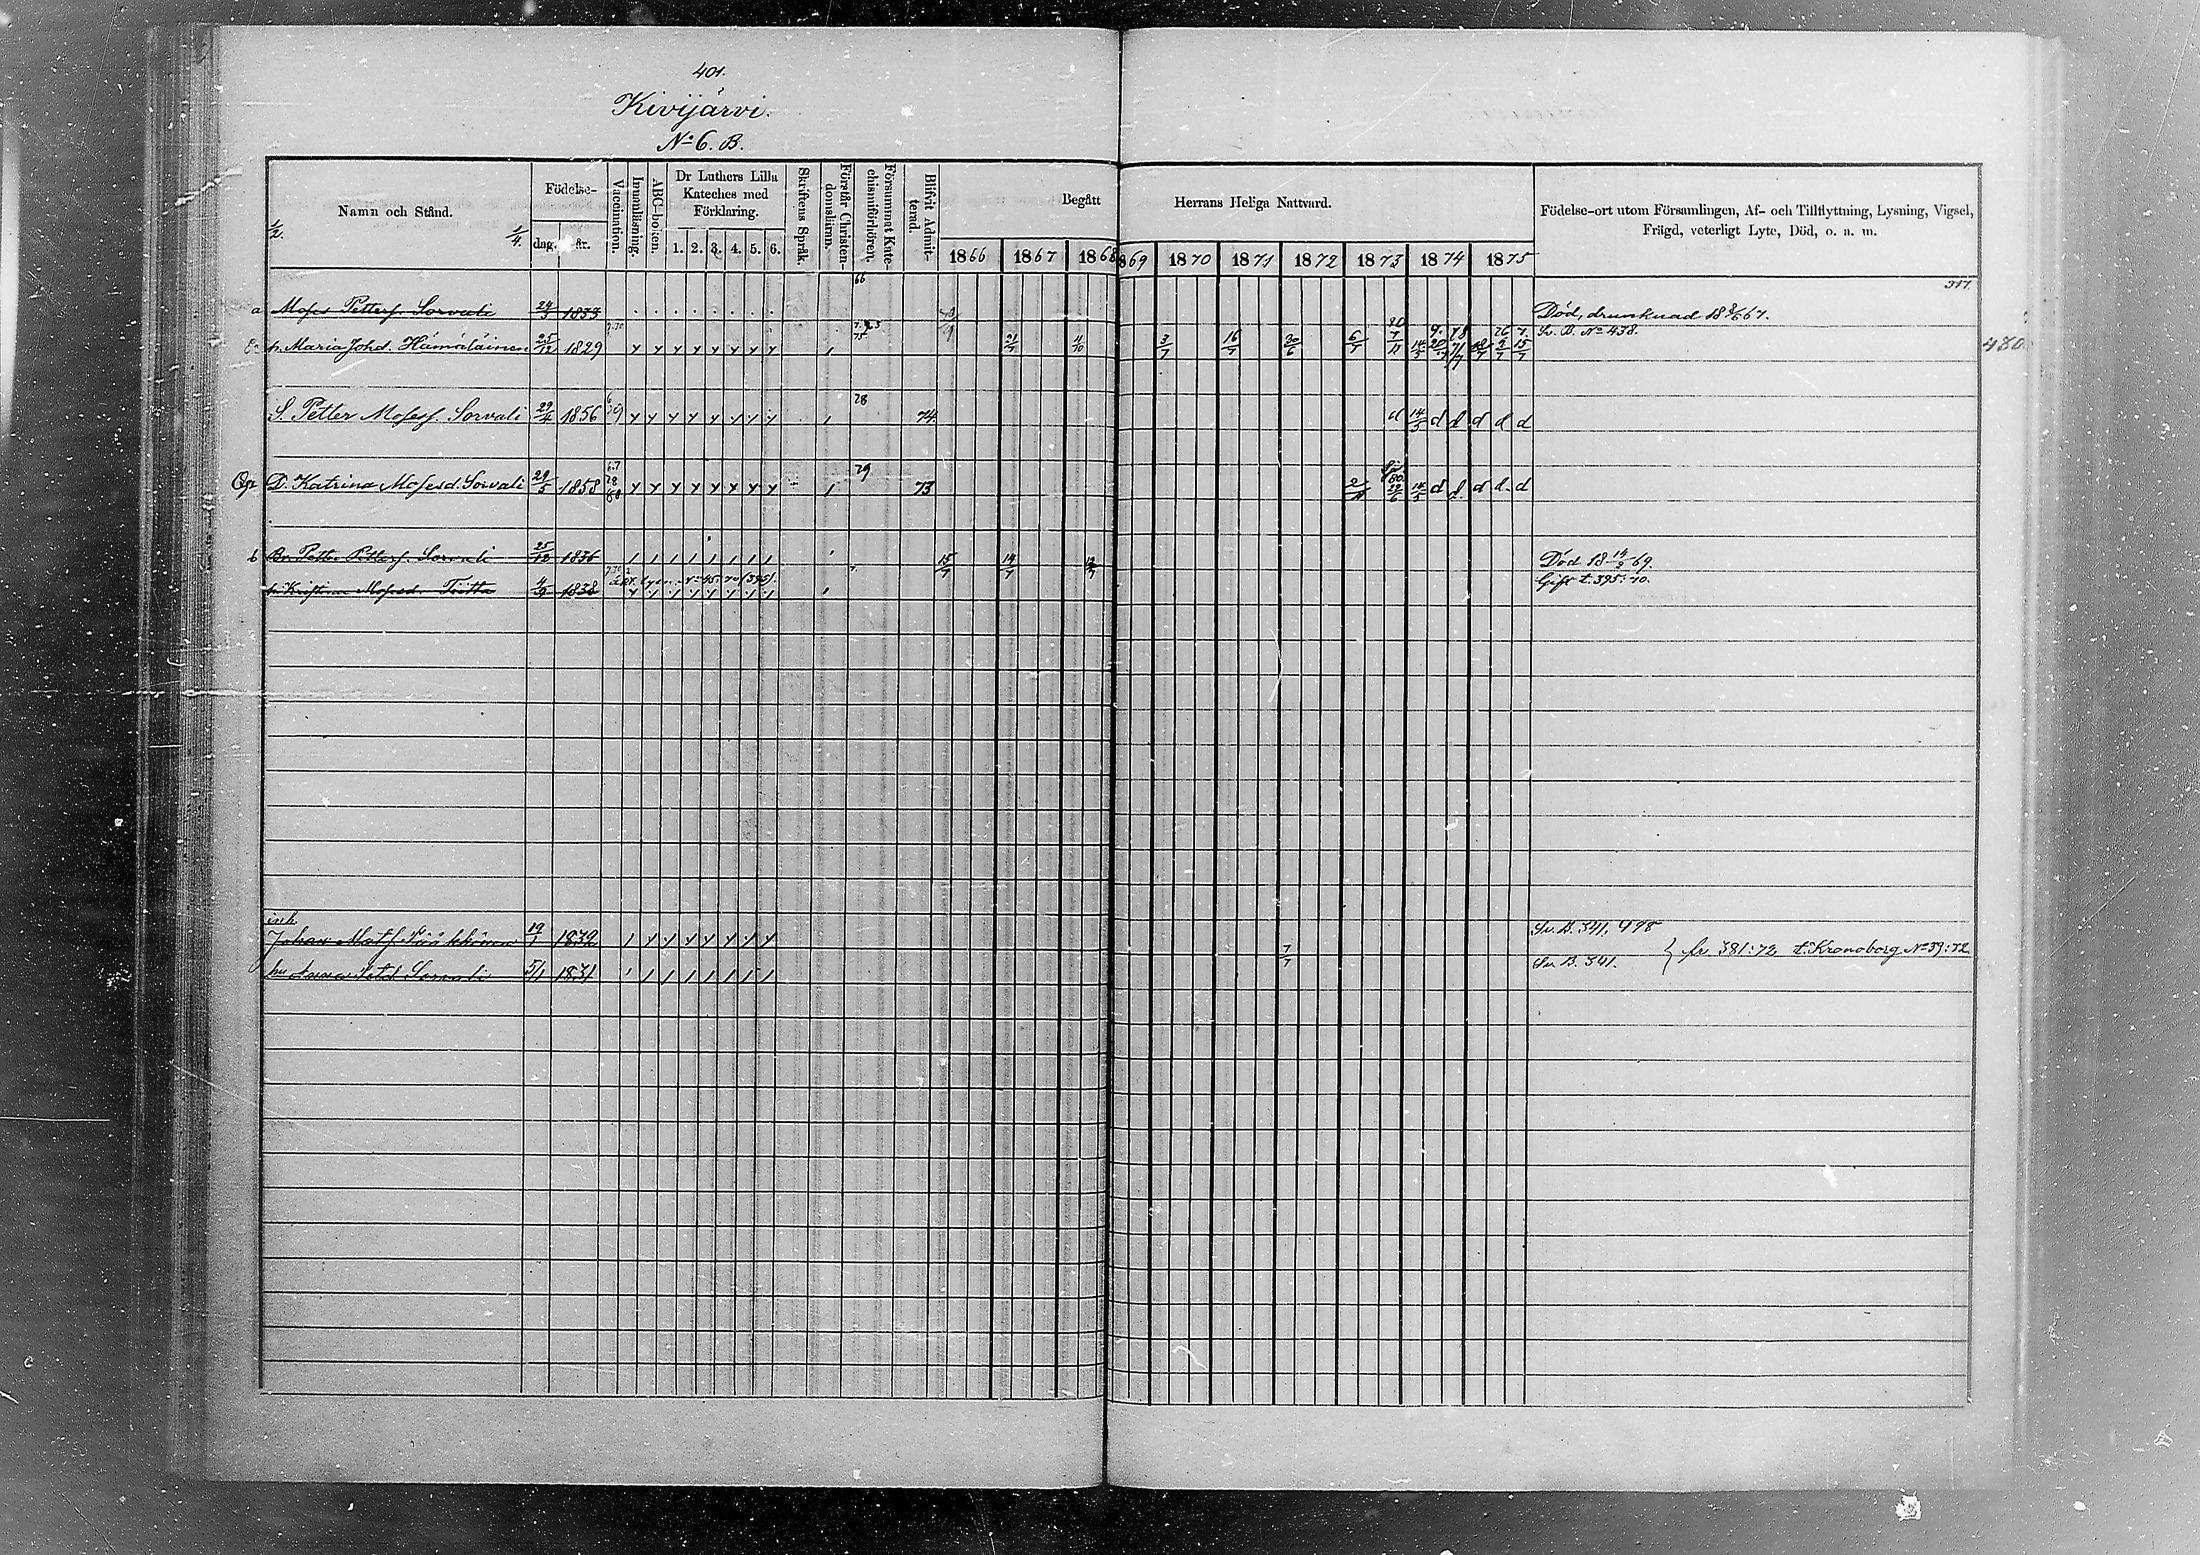 401.
Kivijärvi.
No 6. B.
Namn och Stånd.
1/2.
1/4.
Födelse-
dag. år.
Vaccination.
Innanläsning.
ABC-boken.
Dr Luthers Lilla
Kateches med
Förklaring.
1. 2. 3. 4. 5. 6.
Skriftens Språk.
Förstår Christen-
domsläran.
Försummat Kate-
chismiförhören.
Blifvit Admit-
terad.
Begått Herrans Heliga Nattvard.
1866 1867 1868 1869 1870 1871 1872 1873 1874 1875
Födelse-ort utom Församlingen, Af- och Tillflyttning, Lysning, Vigsel,
Frägd, veterligt Lyte, Död, o. a. m.
317.
66
a Moses Pettersf. Sorvali 24/3 1833 Död, drunknad 18 67.
h. Maria Johd. Hämäläinen 25/12 1829 y y y y y y y y 21/7 11/10 3/7 16/7 20/6 6/7 Sv. B. No 438.
480
28
S. Petter Mosesf. Sorvali 29/4 1856 y y y y y y y y 74. d 14/5 d d d d d
29
D. Katrina Mosesd. Sorvali 29/5 1858 y y y y y y y y 73 22/6 14/5 d d d d d
b Br. Petter Pettersf. Sorvali 25/12 1836 15/7 14/7 12/7 Död 18 14/2 69.
h. Kristina Mosesd. Tritta 4/4 1838 Gift t. 395:70.
inh.
Johan Matsf. Pääkkönen 19/1 1839 y y y y y y y 7/7 Sv. B. 341, 498
hu Anna Petd Sorvali 5/1 1831 Sv. B. 341. } fr. 381:72 t. Kronoborg No 39:72